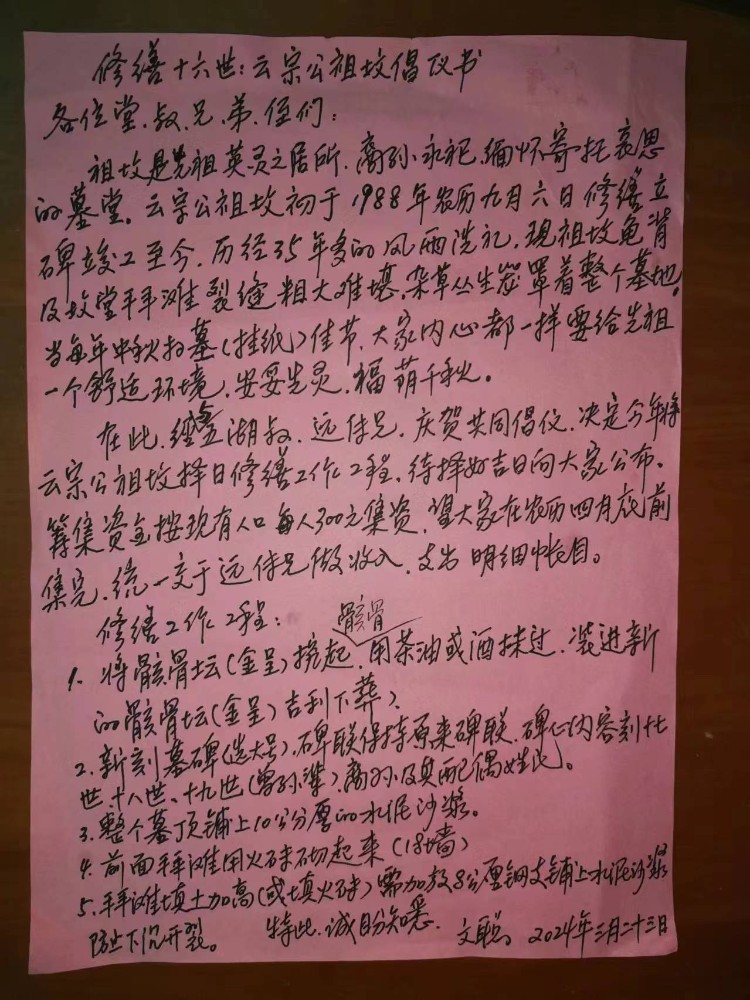 修缮十六世:云宗公祖坟倡仪书
各位堂、叔、兄、弟、侄们:
祖坟是先祖英灵之居所,裔孙永祀,缅怀寄托哀思
的墓堂。云宗公祖坟初于1988年农历九月六日修缮立
碑竣工至今,历经35年多的风雨洗礼,现祖坟龟背
及坟堂拜滩裂缝粗大难堪,杂草丛生岌罩着整个墓地。
当每年中秋扫墓(挂纸)佳节,大家内心都一样要给先祖
一个舒适环境,安妥先灵,福荫千秋。
在此,经金湖叔、远侍兄、庆贺共同倡仪,决定今年将
云宗公祖坟择日修缮工作工程,待择好吉日向大家公布。
筹集资金按现有人口每人300元集资,望大家在农历四月底前
集完,统一交于远侍兄做收入、支出明细帐目。
修缮工作工程:
1、将骸骨坛(金呈)挖起,骸骨用茶油或酒抹过,装进新
的骸骨坛(金呈)吉利下葬)。
2、新刻墓碑(选大号),碑联保持原来碑联,碑心内容刻十七
世、十八世、十九世(曾孙辈)裔孙及其配偶姓氏。
3、整个墓顶铺上10公分厚的水泥沙浆。
4、前面拜滩用火砖砌起来(18墙)
5、拜滩填土加高(或填火砖)需加放8公厘钢支铺上水泥沙浆
防止下沉开裂。 特此,诚盼知悉。 文聪。2024年三月二十三日